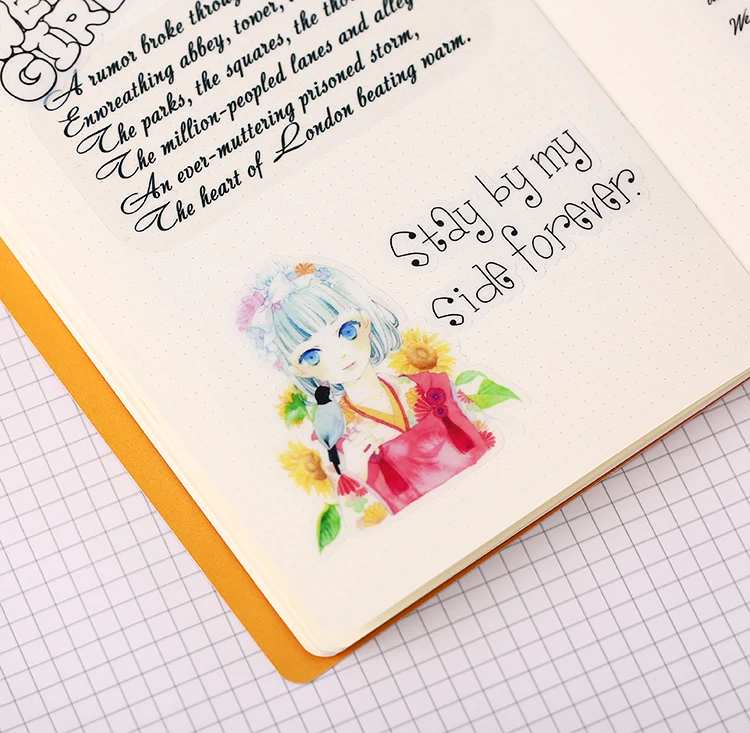 GIRL
A rumor broke through
Enwreathing abbey, tower,
The parks, the squares, the
The million-peopled lanes and alley
An ever-muttering prisoned storm,
The heart of London beating warm.
Stay by my
side forever.
We